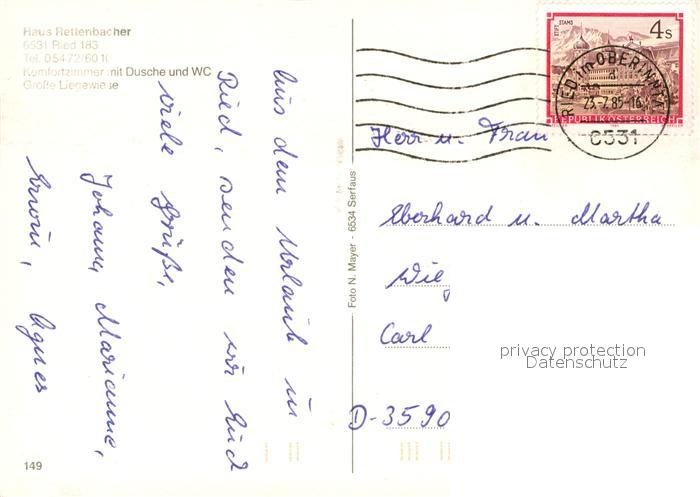 Haus Rettenbacher
6531 Ried 183
Tel. 05472/601
Komfortzimmer mit Dusche und WC
Große Liegewiese
Aus dem Urlaub in
Ried, senden wir Euch
viele Grüße,
Johann, Marianne,
Erwin, Agnes
149
Foto N. Mayer - 6534 Serfaus
STIFT STAMS
4s
REPUBLIK ÖSTERREICH
RIED im OBERINNTAL
23.-7.85-16
6531
Herr u. Frau
Eberhard u. Martha
Wie
Carl
D-3590
privacy protection
Datenschutz